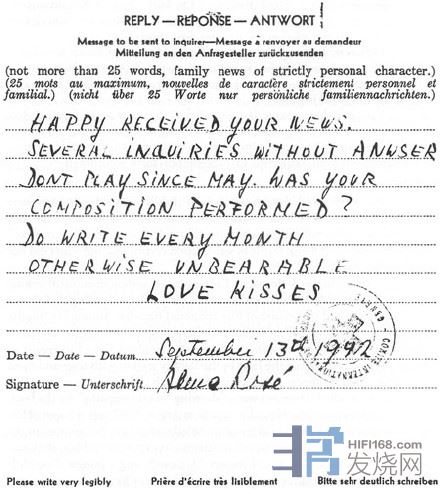 REPLY — REPONSE — ANTWORT
Message to be sent to inquirer—Message à renvoyer au demandeur
Mitteilung an den Anfragesteller zurückzusenden
(not more than 25 words, family news of strictly personal character.)
(25 mots au maximum, nouvelles de caractère strictement personnel et
familial.) (nicht über 25 Worte nur persönliche familiennachrichten.)
HAPPY RECEIVED YOUR NEWS.
SEVERAL INQUIRIES WITHOUT ANWSER
DONT PLAY SINCE MAY. WAS YOUR
COMPOSITION PERFORMED?
DO WRITE EVERY MONTH
OTHERWISE UNBEARABLE
LOVE KISSES
COMITÉ INTERNATIONAL
Date — Date — Datum September 13d 1942
Signature — Unterschrift Alma Rosé
HIFI168.com
发烧网
Please write very legibly Prière d'écrire très lisiblement Bitte sehr deutlich schreiben